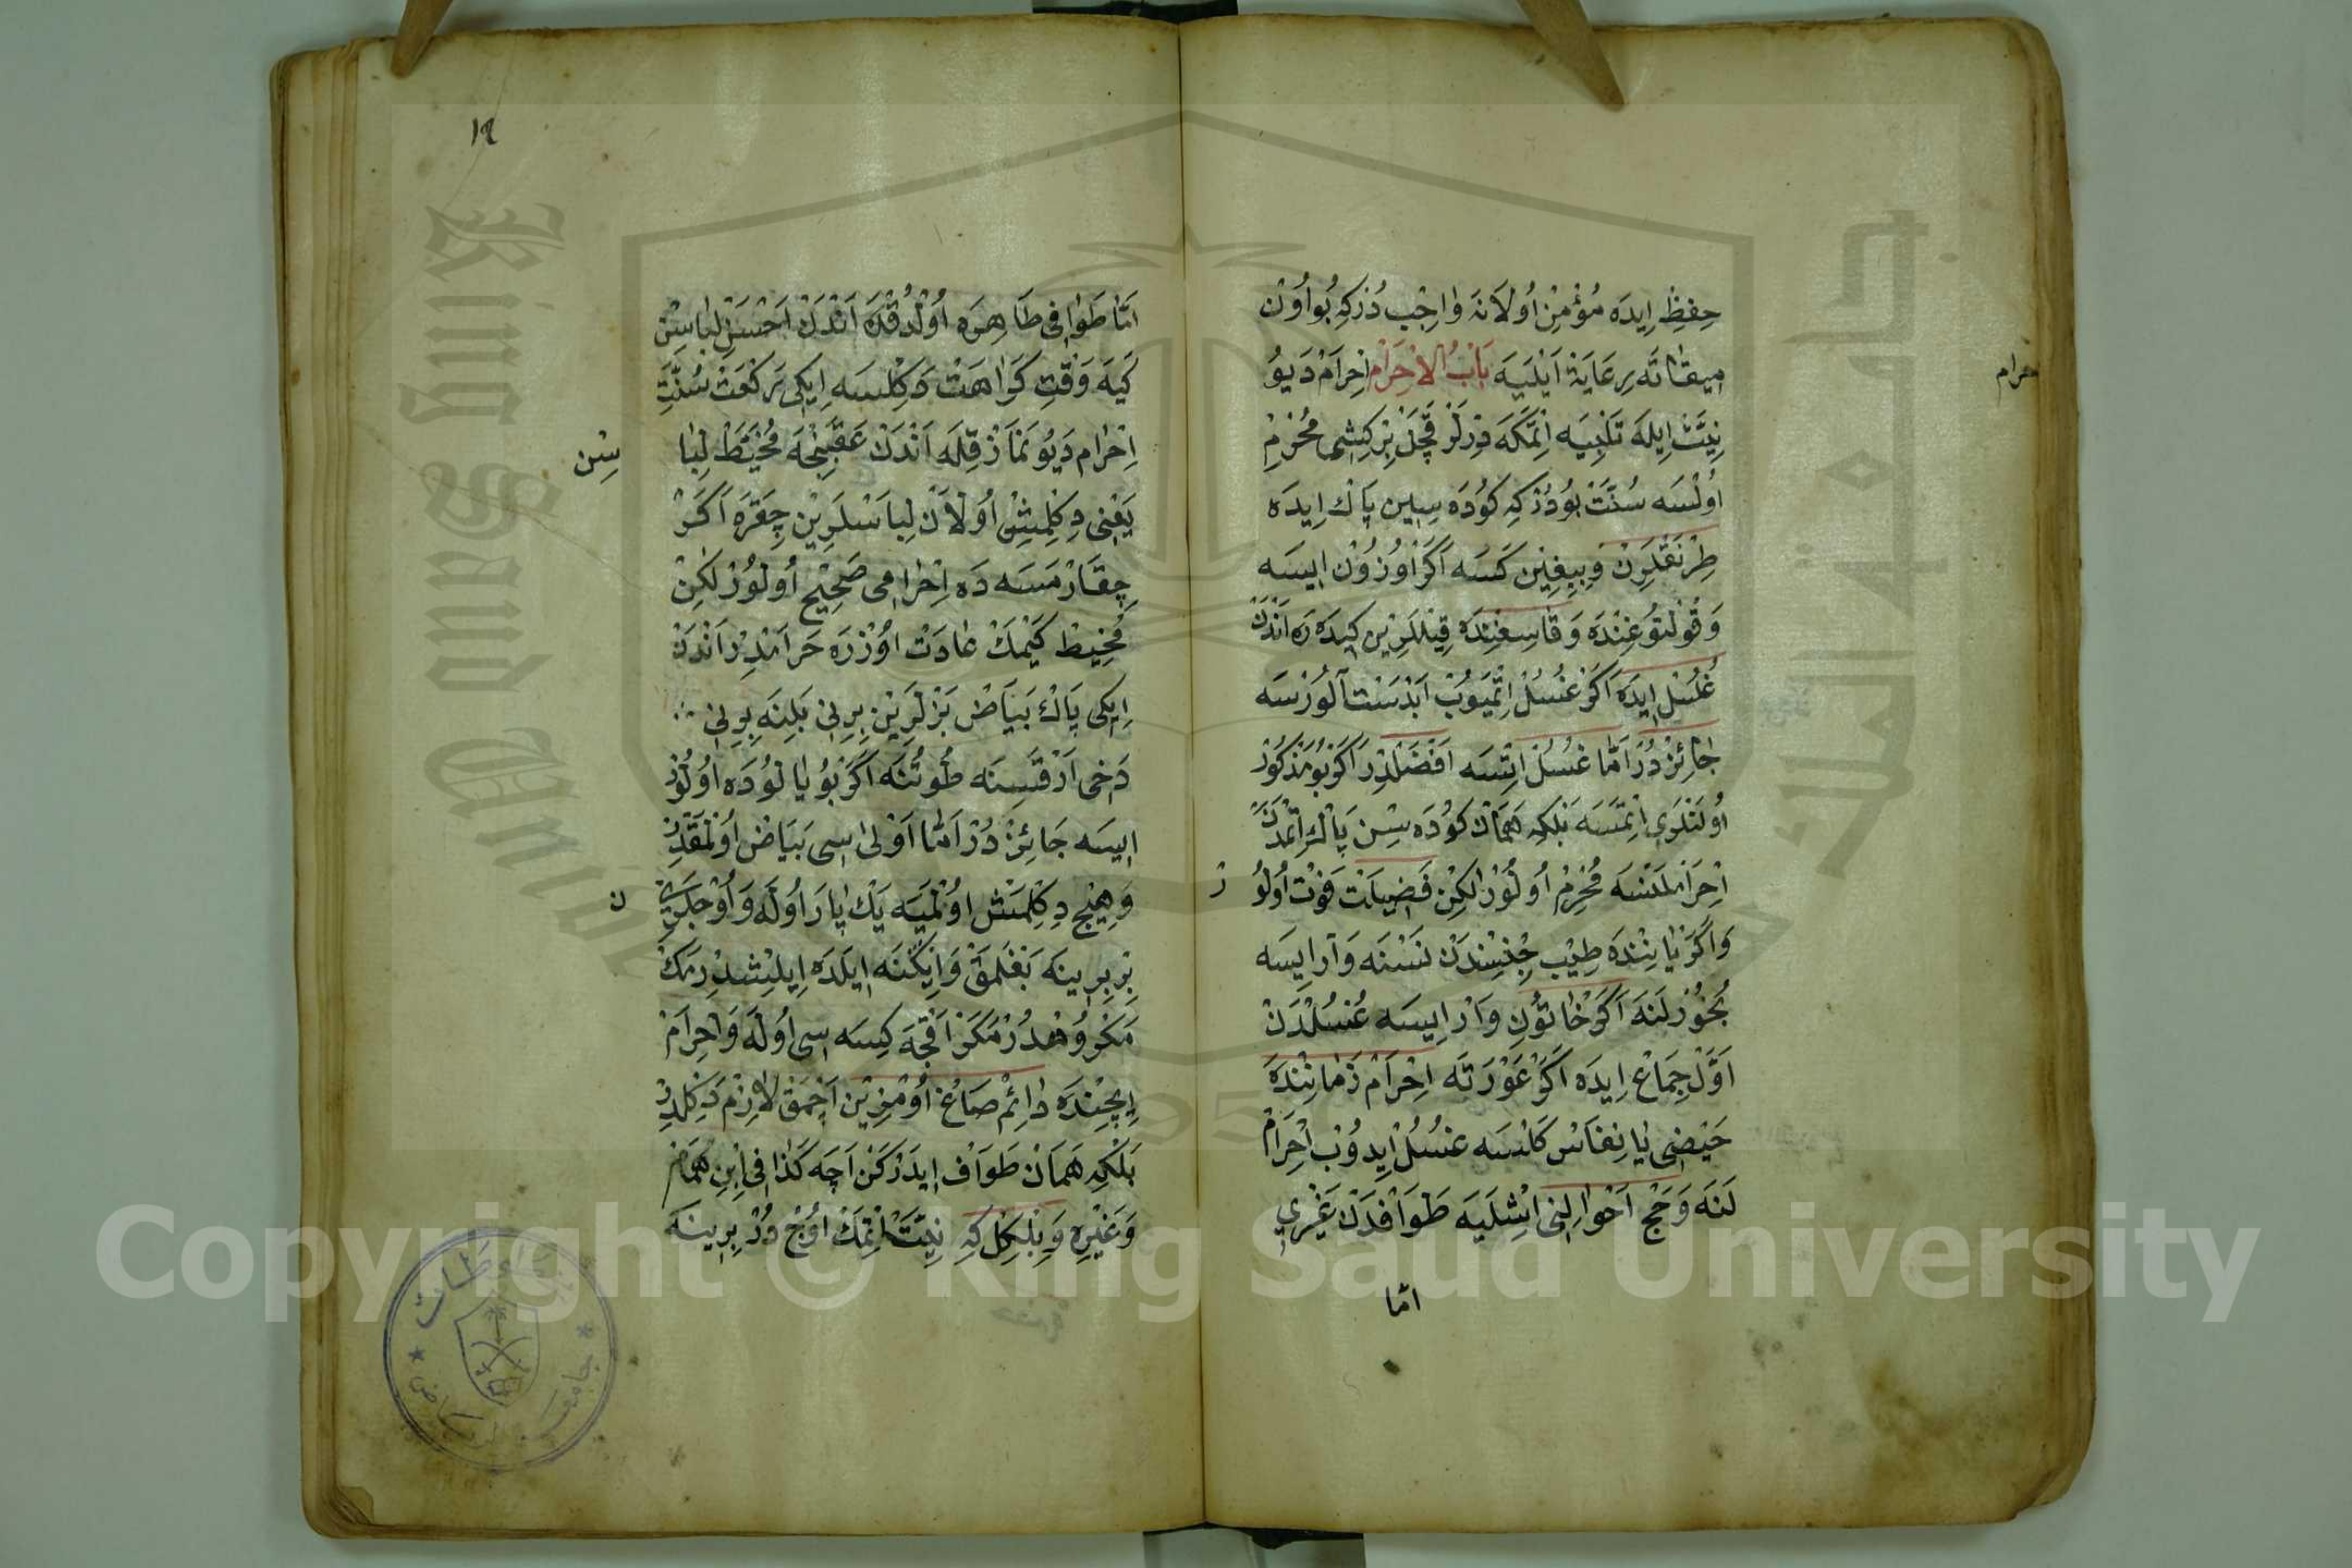 حِفظِ ایدَه مُؤْمِنْ اُولَانَه وٰاجِبْ دُرْ کِه بُو اُوْنْ
مِیقٰاتَه رِعَایَةْ اَیْلَیَه بَابُ الْاِحْرَامْ اِحْرَامْ دَیُو
نِیَّتْ اِیلَه تَلْبِیَه اِتْمَکَه دِرْلَرْ قَچَنْ بِرْ کِشِی مُحْرِمْ
اُولْسَه سُنَّتْ بُودُرْ کِه کَوْدَه سِینْ پَاكْ اِیدَه
طِرْنَقْلَرِنْ وَبِیِغِینْ کَسَه اَکَرْ اُوزُوْنْ اِیسَه
وَقُولْتُوغِنْدَه وَقٰاسِغِنْدَه قِیْللَرِیْن کِیدَه رَه اَنْدَنْ
غُسُلْ اِیدَه اَکَرْ غُسُلْ اِتْمَیُوبْ اَبْدَسْت آلُورْسَه
جٰائِزْ دُرْ اَمَّا غُسُلْ اِتْسَه اَفْضَلْدِرْ اَکَرْ بُو مَذْکُورْ
اُولَنْلَرِی اِتْمَسَه بَلْکِه هَمَانْ کَوْدَه سِنْ پَاكْ اِتْمَدَنْ
اِحْرَاملَنْسَه مُحْرِمْ اُولُوْرْ لٰکِنْ فَضِیلَتْ فَوْتْ اُولُو
رْ
وَاَکَرْ یٰانِنْدَه طِیْبْ جِنْسِنْدَنْ نَسْنَه وَار اِیسَه
بُخُوْرْلَنَه اَکَرْ خٰاتُوْنِ وَارْ اِیسَه غُسُلْدَنْ
اَوَّلْ جِمَاعْ اِیدَه اَکَرْ عَوْرَتَه اِحْرَامْ زَمٰانِنْدَه
حَیْضِی یٰا نِفَاسْ کَلْسَه غُسُلْ اِیدُوْبْ اِحْرَامْ
لَنَه وَحَجْ اَحْوٰالِنِی اِشْلَیَه طَوَافْدَنْ غَیْرِی
امّا
١٩
اَمَّا طَوٰافِی طَاهِرَه اُوْلْدُقْدَه اَنْدَنْ اَحْسَنِ لِبٰاسِنْ
کَیَه وَقْتِ کَرٰاهَتْ دَکِلْسَه اِیکِی رَکْعَتْ سُنَّتِ
اِحْرٰام دَیُو نَمَازْ قِلَه اَنْدَنْ عَقَبِنْجَه مُخَیَّطْ لِبٰا
سِنْ
یَعْنِی دِکِلْمِشْ اُوْلَانْ لِبَاسْلَرِیْن چِقَرَه اَکَرْ
چِقَارْمَسَه دَه اِحْرٰامِی صَحِیْحْ اُولُوْرْ لٰکِنْ
مُخِیْطْ کَیْمَكْ عٰادَتْ اُوْزْرَه حَرَامْدِرْ اَنْدَنْ
اِیکِی پَاكْ بَیَاضْ بَزْلَرِیْن بِرِنِی بَلِنَه بِرِنِی
دَخِی اَرْقَسِنَه طُوتُنَه اَکَرْ بُو یٰا لُودَه اُولُوْرْ
اِیسَه جَائِزْ دُرْ اَمَّا اَوْلٰی اِسِی بَیَاضْ اُوْلْمَقْدِرْ
وَهِیْچ دِکِلْمِشْ اُوْلْمَیَه یَكْ پٰارَه اُولَه وَاُوْجلَرِیْ
ن
بِرْ بِرِینَه بَغْلَمَقْ وَاِیکْنَه اِیلَه اِیلِشْدِرْمَكْ
مَکْرُوْهْدُرْ مَکَرْ اَقْچَه کِسَه سِی اُولَه وَاِحْرَامْ
اِیچِنْدَه دٰائِمْ صَاغْ اُوْمُوزِیْن اَچْمَقْ لَازِمْ دَکِلْدِرْ
بَلْکِه هَمَانْ طَوَافْ اِیدَرْکَنْ اَچَه کَذٰا فِی اِبْنِ هُمَامْ
وَغَیْرِه وَبِلْکِلْ کِه نِیَّتْ اِتْمَكْ اُوْچْ دُرْ بِرِینَه
Copyright © King Saud University